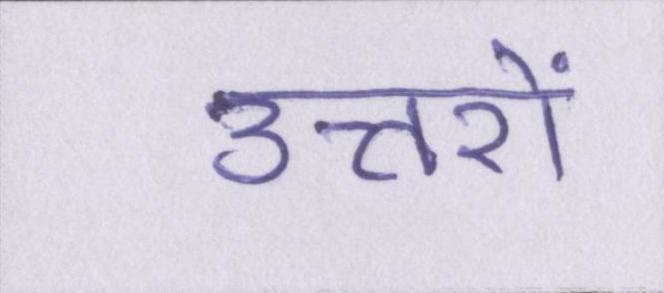 उत्तरों